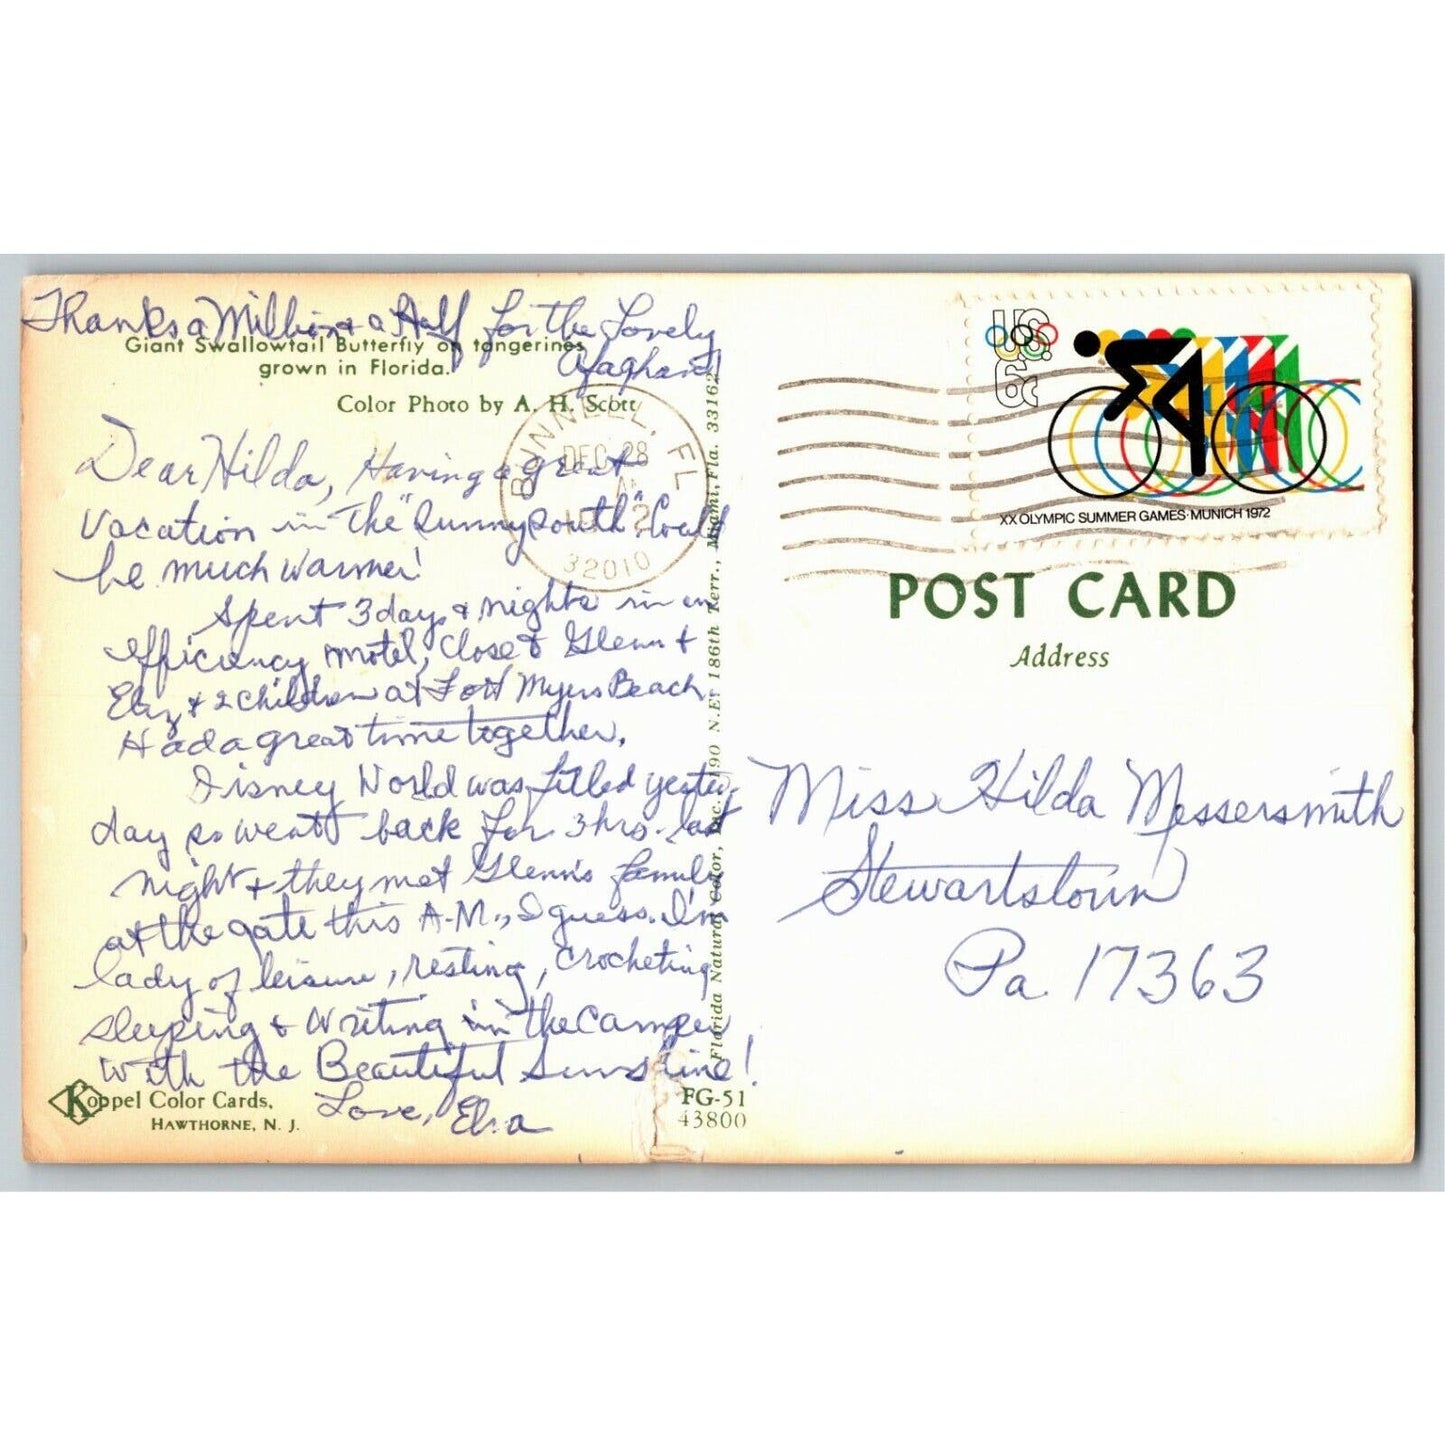 Thanks a Million & a Half for the Lovely
Afaghand
Giant Swallowtail Butterfly on tangerines
grown in Florida.
Color Photo by A. H. Scott
Dear Hilda, Having a great
vacation in the "Sunny South". Could
be much warmer!
Spent 3 days & nights in an
efficiency motel, close to Glenn &
Eliz & 2 children at Fort Myers Beach.
Had a great time together.
Disney World was filled yester-
day so went back for 3 hrs. last
night & they met Glenn's family
at the gate this A.M., I guess. I'm
lady of leisure, resting, crocheting
sleeping & writing in the camper
with the Beautiful Sunshine!
Love,
Koppel Color Cards,
HAWTHORNE, N. J.
FG-51
43800
Florida Natural Color, Inc. 1190 N.E. 186th Terr., Miami, Fla. 33162
BUNNELL, FL
DEC 28
AM
1972
32010
U.S.
6¢
XX OLYMPIC SUMMER GAMES·MUNICH 1972
POST CARD
Address
Miss Hilda Messersmith
Stewartstown
Pa. 17363